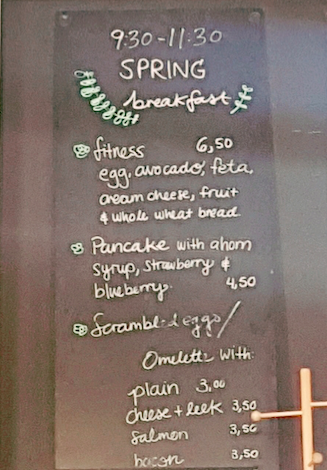 9:30-11:30
SPRING
breakfast
fitness 6,50
egg, avocado, feta,
cream cheese, fruit
& whole wheat bread
Pancake with ahorn
syrup, strawberry &
blueberry. 4,50
Scrambled eggs/
Omelette with:
plain 3,00
cheese + leek 3,50
salmon 3,50
bacon 3,50